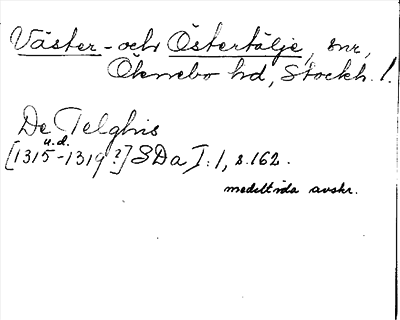 Väster- och Östertälje, snr,
Öknebo hd, Stockh. l.
De Telghis
u.d.
[1315-1319?] SDa I:1, s.162.
medeltida avskr.